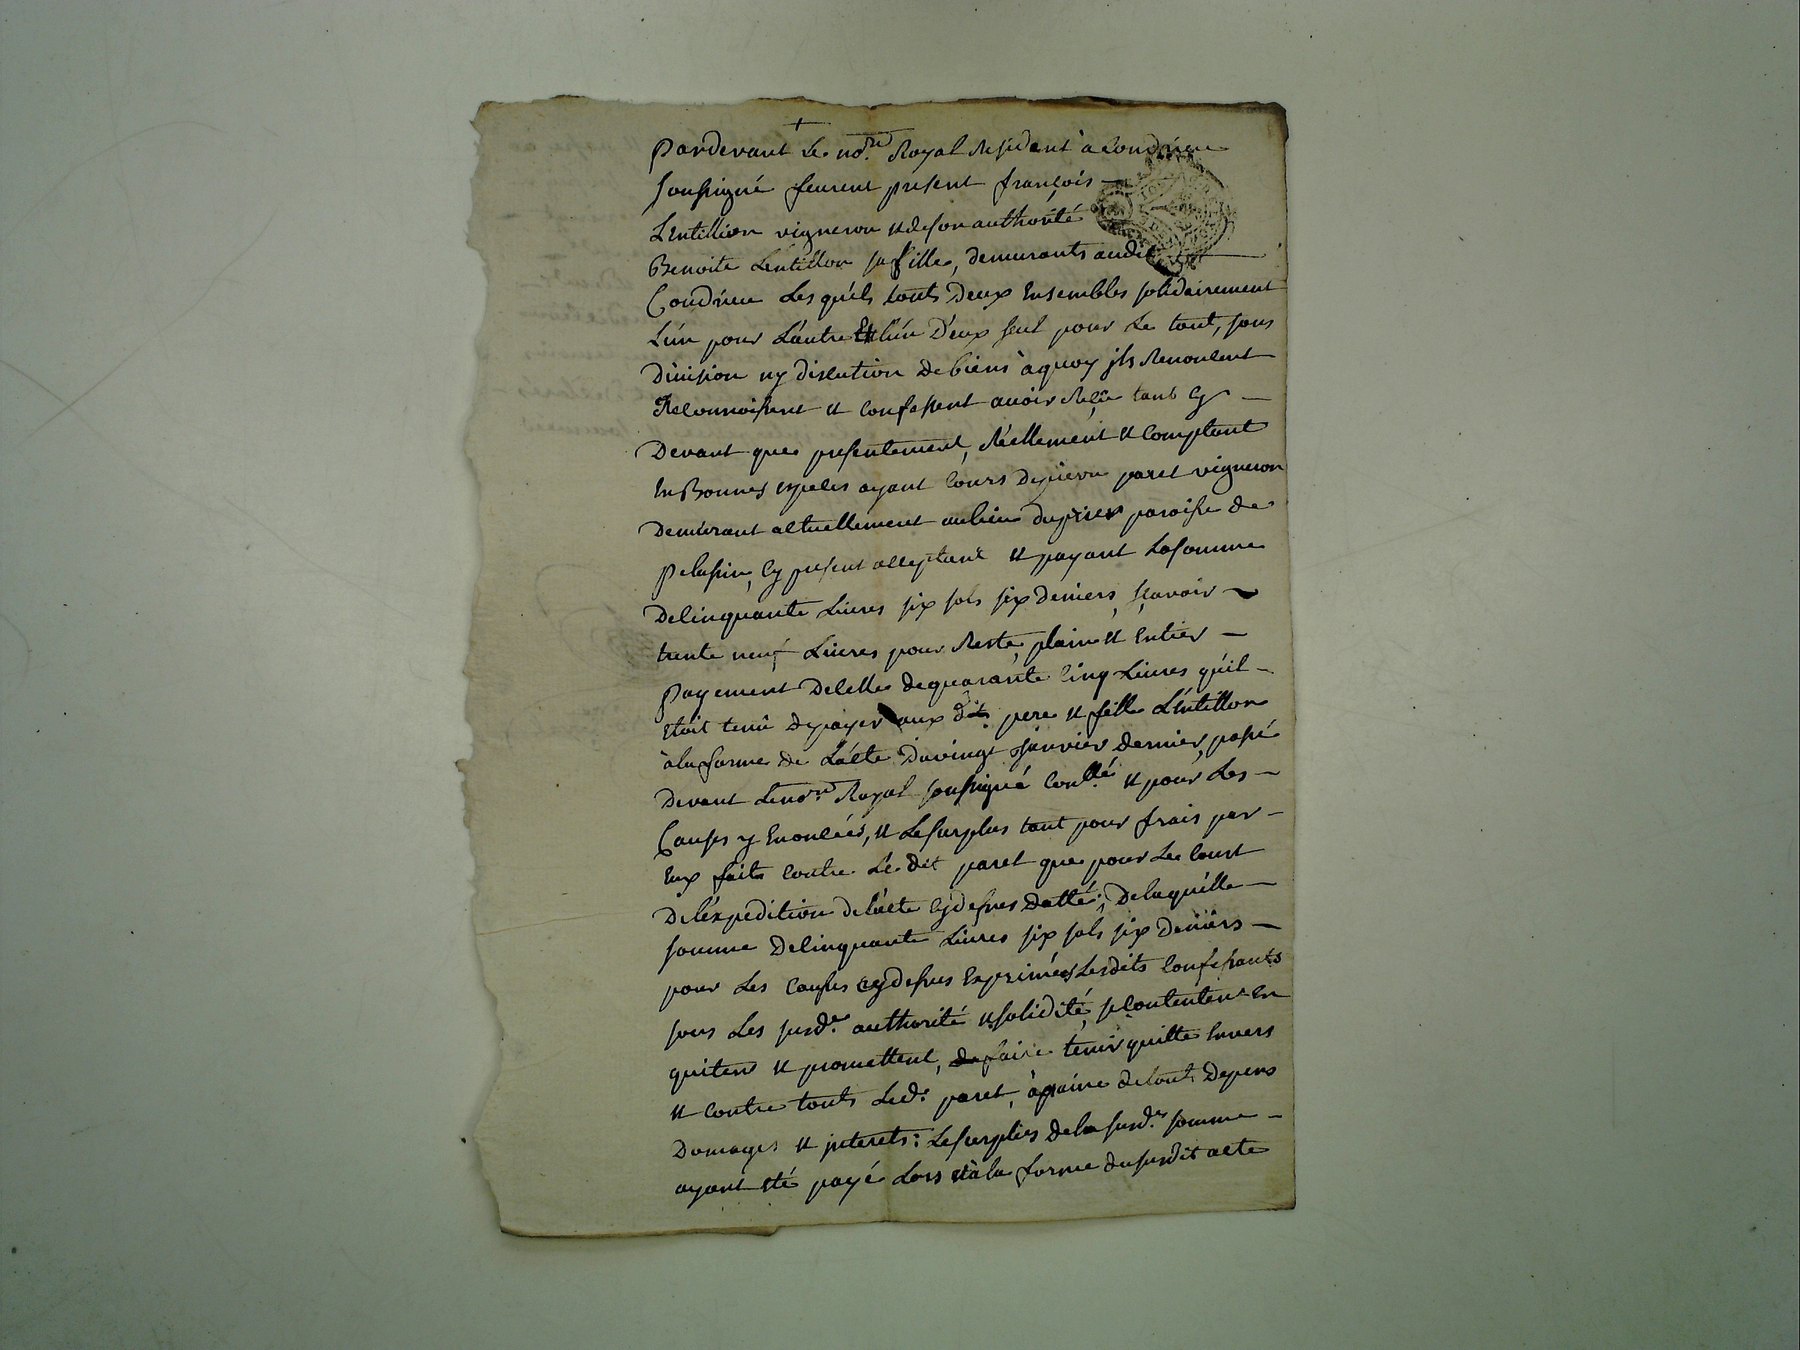 +
Pardevant Le no.re Royal Residant à Condrieu
soussigné feurent présent françois
Lentillion vigneron et de son authorité
Benoite Lentillon sa fille, demurants audit
Condrieu Les quels touts Deux Ensembles solidairement
L'un pour L'autre Et l'un D'eux seul pour Le tout, sans
Division ny discution de biens à quoy ils Renoncent
Reconnoissent et confessent avoir Reçû tant cy
Devant que presentement, Réellement et comptant
En Bonnes especes ayant cours de pierre paret vigneron
Demurant actuellement au lieu du paroisse de
pelussin, Cy présent acceptant et payant La somme
De cinquante Livres six sols six deniers, sçavoir
trente neuf Livres pour Reste, plain et Entier
payement De celle de quarante cinq Livres qu'il
etoit tenû de payer aux dits pere et fille L'entillon
à la forme de L'acte Du vingt Janvier dernier, passé
Devant Le no.re Royal soussigné Conllé et pour Les
Causes y Enoncées, et Le surplus tant pour frais par
Eux faits contre Le dit paret que pour Le coust
De L'éxpedition de l'acte cydessus Datté; De laquelle
somme De cinquante Livres six sols six deniers
pour Les causes cydessus Exprimées Lesdits confessants
sous Les susd.e authorité et solidité, se contentent En
quitent et promettent, de faire tenir quitte Envers
et contre touts Led.t paret, à paine de touts Depens
Domages et interets: Le surplus de la susd.e somme
ayant eté payé Lors et à la forme du susdit acte